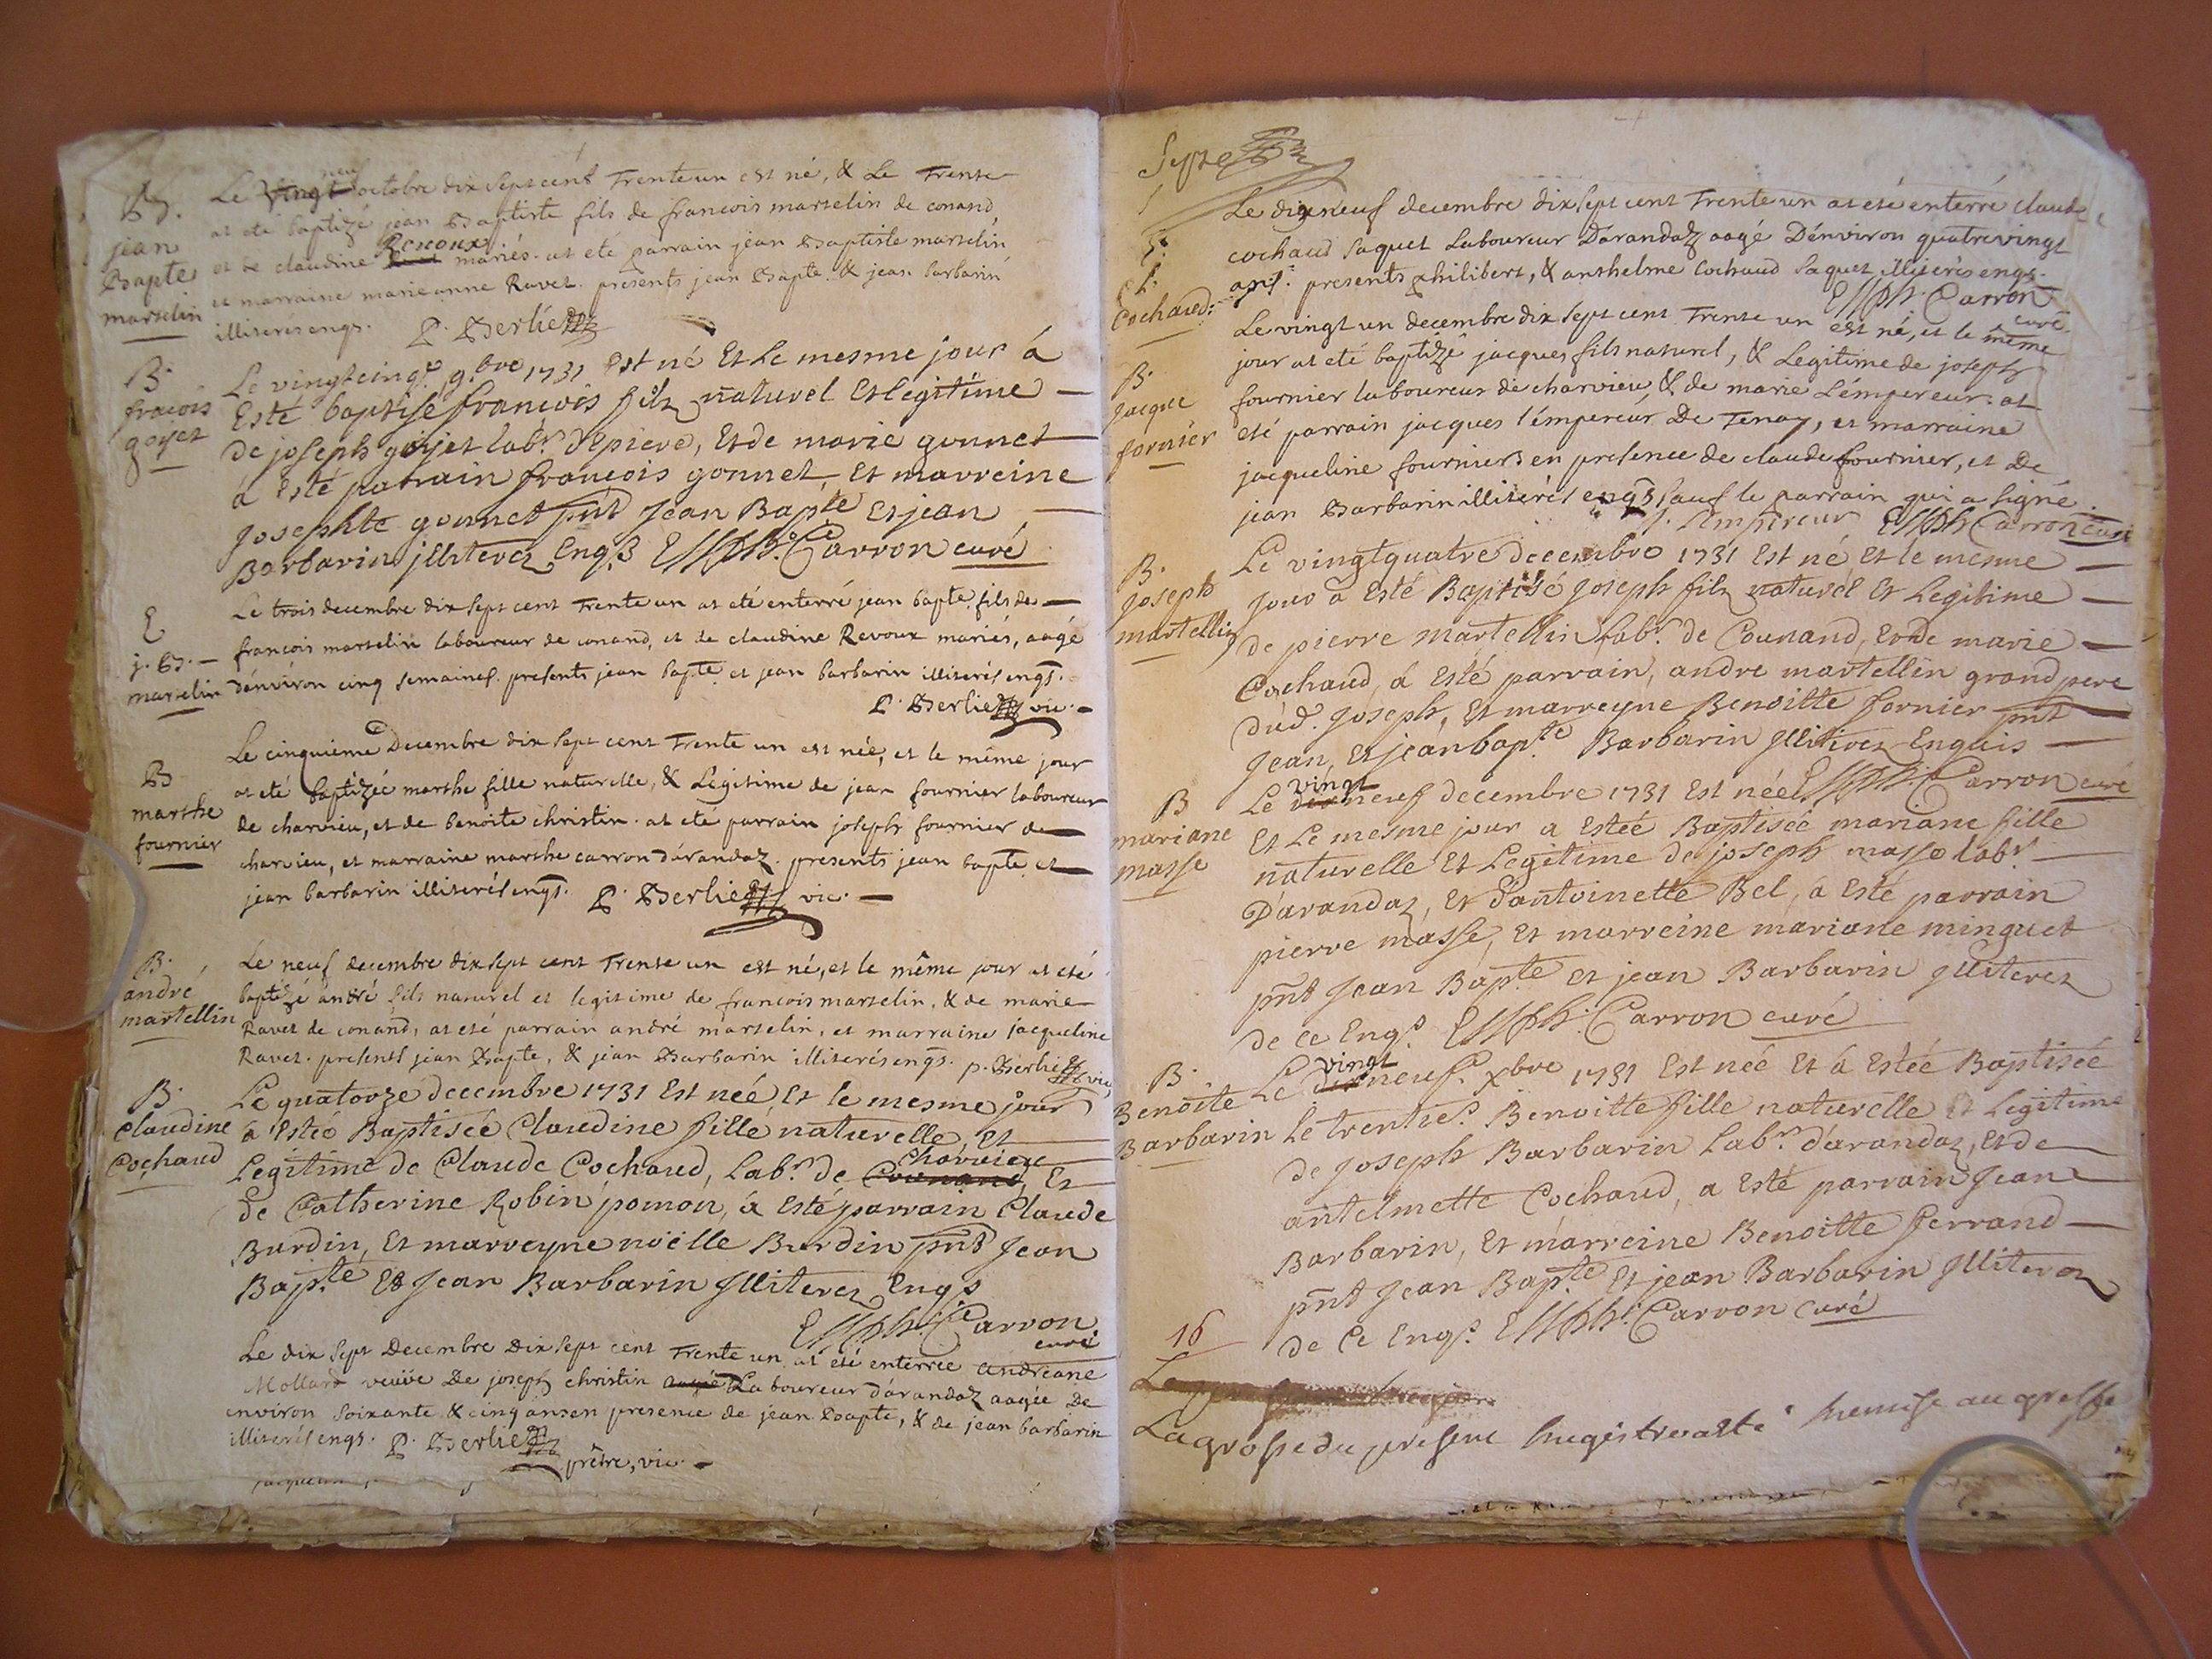 B.
jean
Bapte
martelin
Le vingt neuf octobre dix sept cent Trente un est né, & Le Trente
at eté baptizé jean Baptiste fils de francois martelin de conand
et de claudine Revoux mariés. at eté parrain jean Baptiste martelin
et marraine marieanne Ravet. presents jean Bapte & jean barbarin
illiterés engs. P. Berlie
B.
fracois
goyet
Le vingtcinq.e 9.bre 1731 Est né Et Le mesme jour á
Esté baptisé francois filz naturel Et legitime
de joseph goyet lab.r d'épiere, Et de marie gonnet
á Esté parrain francois gonnet, Et marreine
Josephte gonnet pnt Jean Bap.te Et jean
Barbarin jlliterez Enq.s Carron curé
E
j. B.
martelin
Le trois decembre dix sept cent Trente un at eté enterré jean bapte fils de
francois martelin laboureur de conand, et de claudine Revoux mariés, aagé
dénviron cinq semaines. presents jean bapte et jean barbarin illiterés engs.
P. Berlie vic.
B
marthe
fournier
Le cinquieme Decembre dix sept cent Trente un est née, et le même jour
at eté baptizée marthe fille naturelle, & Légitime de jean fournier laboureur
de charvieu, et de benoite christin. at ete parrain joseph fournier de
charvieu, et marraine marthe carron dárandaz. presents jean bapte et
jean barbarin illiterés engs. P. Berlie vic.
B.
andré
martellin
Le neuf decembre dix sept cent Trente un est né, et le même jour at eté
baptizé andré fils naturel et legitime de francois martelin, & de marie
Ravet de conand, at eté parrain andré martelin, et marraine jacqueline
Ravet. presents jean Bapte, & jean Barbarin illiterés engs. p. Berlie vic.
B.
Claudine
Cochaud
Le quatorze decembre 1731 Est neé, Et le mesme jour
á Esteé Baptiseé Claudine fille naturelle, Et
Legitime de Claude Cochaud, Lab.r de Counand Charvieu Et
de Catherine Robin pomon, á Esté parrain Claude
Burdin, Et marreyne noëlle Burdin pnt Jean
Bap.te Et Jean Barbarin Jlliterez Enqs
Carron
curé
Le dix sept Decembre Dix sept cent Trente un at eté enterrée Andréane
Mollard veuve De joseph christin Laboureur dárandaz aagée De
environ soixante & cinq ans en presence de jean Bapte, & de jean barbarin
illiterés engs. P. Berlie
prêtre, vic.
Septe
E.
Cl.
Cochaud.
Le dix neuf decembre dix sept cent Trente un at eté enterré claude
cochaud saquet Laboureur Dárandaz aagé Dénviron quatrevingt
ans. presents philibert, & anthelme Cochaud saquet illiterés engs.
Carron
curé
B.
Jacque
fornier
Le vingt un decembre dix sept cent Trente un est né, et le même
jour at eté baptizé jacques fils naturel, & Legitime de joseph
fournier laboureur de charvieu, & de marie Lémpereur. at
eté parrain jacques lémpereur De Tenay, et marraine
jacqueline fournier en presence de claude fournier, et De
jean Barbarin illiterés engs sauf le parrain qui a signé.
j. Lempereur Carron curé
B.
Joseph
martellin
Le vingtquatre decembre 1731 Est né Et le mesme
jour á Esté Baptisé Joseph filz naturel Et Legitime
de pierre martellin lab.r de Counand, Et de marie
Cochaud, á Esté parrain, andre martellin grand pere
dud. Joseph, Et marreyne Benoitte fornier pnt
Jean, Et jean bap.te Barbarin Jlliterez Enquis
Carron curé
B
mariane
masse
Le dix vingt neuf decembre 1731 Est neé
Et Le mesme jour a Esteé Baptiseé mariane fille
naturelle Et Legitime de joseph masse lab.r
D'arandaz, Et d'antoinette Bel, á Esté parrain
pierre masse, Et marreine mariane minguet
pnt Jean Bap.te Et jean Barbarin Jlliterez
de ce Enq.s Carron curé
B.
Benoite
Barbarin
Le dix vingt neuf.e Xbre 1731 Est neé Et á Esteé Baptiseé
le trentie.e Benoitte fille naturelle Et Legitime
de Joseph Barbarin Lab.r d'arandaz, Et de
antelmette Cochaud, a Esté parrain Jean
Barbarin, Et marreine Benoitte ferrand
pnt Jean Bap.te Et jean Barbarin Jlliterez
de Ce Enq.s Carron Curé
16
La grosse du present Registre a esté Remise au greffe